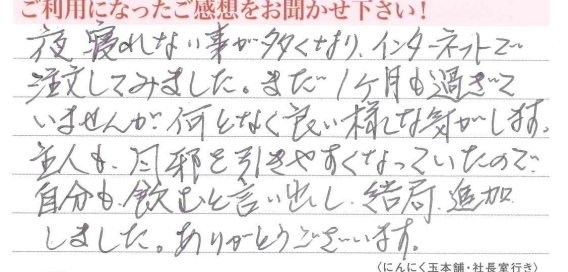 ご利用になったご感想をお聞かせ下さい！
夜寝れない事が多くなり、インターネットで
注文してみました。まだ1ヶ月も過ぎて
いませんが、何となく良い様な気がします。
主人も、風邪を引きやすくなっていたので
自分も飲むと言い出し、結局、追加
しました。ありがとうございます。
（にんにく玉本舗・社長室行き）